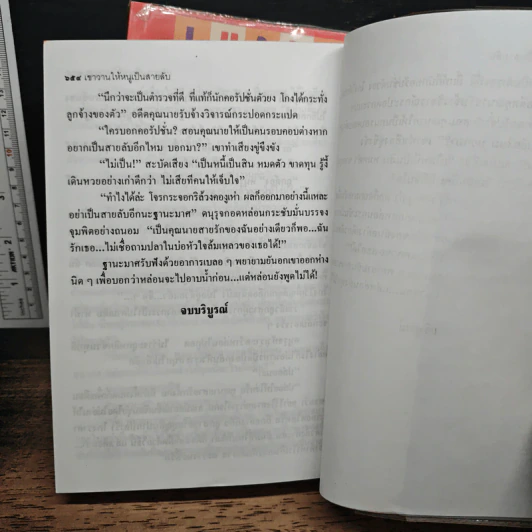 ๖๕๔ เขาวานให้หนูเป็นสายลับ
“นึกว่าจะเป็นตำรวจที่ดี ที่แท้ก็นักคอรัปชั่นตัวยง โกงได้กระทั่ง
ลูกจ้างของตัว” อดีตคุณนายรับจ้างวิจารณ์กระปอดกระแปด
“ใครบอกคอรัปชั่น? สอนคุณนายให้เป็นคนรอบคอบต่างหาก
อยากเป็นสายลับอีกไหม บอกมา?” เขาทำเสียงขู่ขึงขัง
“ไม่เป็น!” สะบัดเสียง “เป็นหนี้เป็นสิน หมดตัว ขาดทุน รู้งี้
เดินหวยอย่างเก่าดีกว่า ไม่เสียที่คนให้เจ็บใจ”
“ทำไงได้ล่ะ โจรกระจอกริล้วงคองูเห่า ผลก็ออกมาอย่างนี้แหละ
อย่าเป็นสายลับอีกนะฐานะมาศ” ดนุรุจกอดหล่อนกระชับมั่นบรรจง
จุมพิตอย่างถนอม “เป็นคุณนายสายรักของฉันอย่างเดียวก็พอ...ฉัน
รักเธอ...ไม่เชื่อถามปลาในบ่อหัวใจล้มเหลวของเธอได้!”
ฐานะมาศรับฟังด้วยอาการเบลอ ๆ พยายามยันอกเขาออกห่าง
นิด ๆ เพื่อบอกว่าหล่อนจะไปอาบน้ำก่อน...แต่หล่อนยังพูดไม่ได้!
จบบริบูรณ์